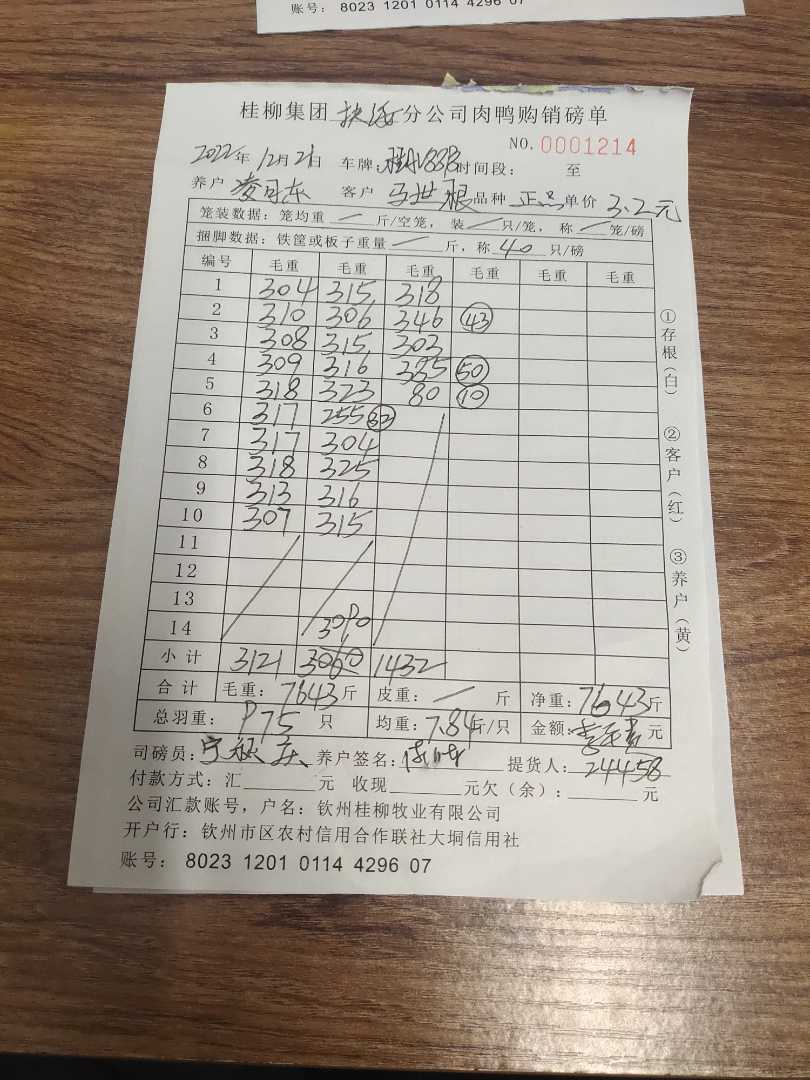 账号： 8023 1201 0114 4296 07
桂柳集团 扶绥 分公司肉鸭购销磅单
NO. 0001214
2022年 12月 21日 车牌： 时间段： 至
养户 客户 马世根 品种 正品 单价 3.2元
笼装数据：笼均重 一 斤/空笼， 装 一 只/笼， 称 一 笼/磅
捆脚数据：铁筐或板子重量 一 斤，称 40 只/磅
编号 毛重 毛重 毛重 毛重 毛重 毛重
1 304 315 318
2 310 306 346 43
3 308 315 303
4 309 316 385 50
5 318 323 80 10
6 317 255 32
7 317 304
8 318 325
9 313 316
10 307 315
11
12
13
14 3090
小计 3121 3060 1432
合计 毛重： 7643斤 皮重： 一 斤 净重： 7643斤
总羽重： 975 只 均重： 7.84斤/只 金额： 元
司磅员： 养户签名： 提货人： 24458
付款方式：汇 元 收现 元欠（余）： 元
公司汇款账号，户名：钦州桂柳牧业有限公司
开户行：钦州市区农村信用合作联社大垌信用社
账号： 8023 1201 0114 4296 07
①存根（白） ②客户（红） ③养户（黄）